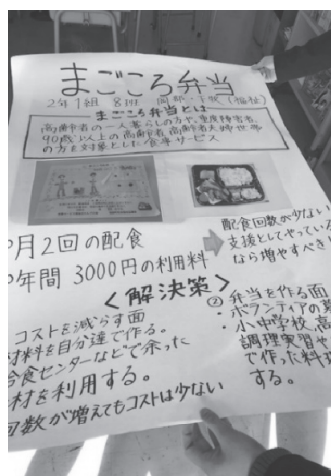 まごころ弁当
2年1組 8班 岡部・下武(福祉)
まごころ弁当とは
高齢者の一人暮らしの方や、重度障害者、
90歳以上の高齢者、高齢者夫婦世帯
の方を対象とした食事サービス
月2回の配食
年間3000円の利用料
配食回数が少ない
支援としてやっている
なら増やすべき
<解決策>
コストを減らす面
材料を自分達で作る。
給食センターなどで余った
材を利用する。
回数が増えてもコストは少ない
② 弁当を作る面
・ボランティアの募
・小中学校、高
調理実習や
で作った料理
する。